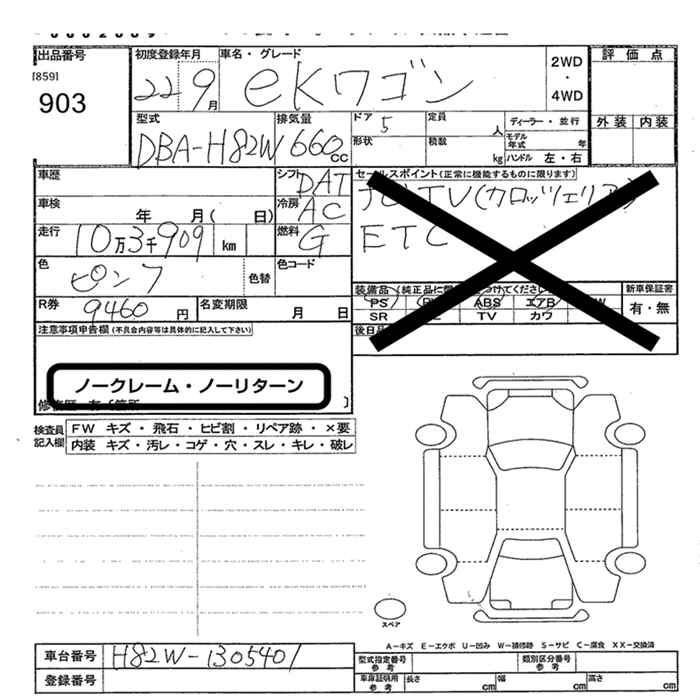 出品番号 初度登録年月 車名・グレード 2WD ・ 4WD 評価点
[859]
903 22 9月 eKワゴン
外装 内装
型式 排気量 ドア 5 定員 人 ディーラー・並行
DBA-H82W 660cc 形状 積数 kg モデル年式 年
ハンドル 左・右
車歴 シフト DAT セールスポイント(正常に機能するものに限ります)
車検 年 月( 日) 冷房 AC ナビTV(カロッツェリア)
走行 10万3千909 km 燃料 G ETC
色 ピンク 色替 色コード
装備品 新車保証書
R券 9460円 名変期限 月 日 PS ABS エアB 有・無
SR TV カワ
注意事項申告欄(不具合内容等は具体的に記入して下さい) 後日品
ノークレーム・ノーリターン
検査員記入欄 FW キズ・飛石・ヒビ割・リペア跡・×要
内装 キズ・汚レ・コゲ・穴・スレ・キレ・破レ
スペア
A-キズ E-エクボ U-凹み W-補修跡 S-サビ C-腐食 XX-交換済
車台番号 H82W-1305401 型式指定番号 参考 類別区分番号 参考
登録番号 車庫証明用 参考 長さ cm 幅 cm 高さ cm